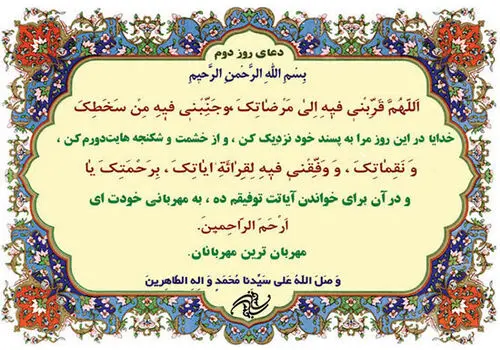 دعای روز دوم
بِسْمِ اللهِ الرَّحْمنِ الرَّحیمِ
اَللّهُمَّ قَرِّبْنی فیهِ اِلی مَرْضاتِکَ ،وجَنِّبْنی فیهِ مِنْ سَخَطِکَ
خدایا در این روز مرا به پسند خود نزدیک کن ، و از خشمت و شکنجه هایت‌دورم‌کن ،
وَ نَقِماتِکَ ، وَ وَفِّقْنی فیهِ لِقِرائَةِ ایاتِکَ ، بِرَحْمَتِکَ یا
و در آن برای خواندن آیاتت توفیقم ده ، به مهربانی خودت ای
اَرْحَمَ الرّاحِمینَ.
مهربان ترین مهربانان.
وَ صَلَ اللهُ عَلی سَیِّدنا مُحَمَدٍ وَ الِهِ الطاهِرینَ